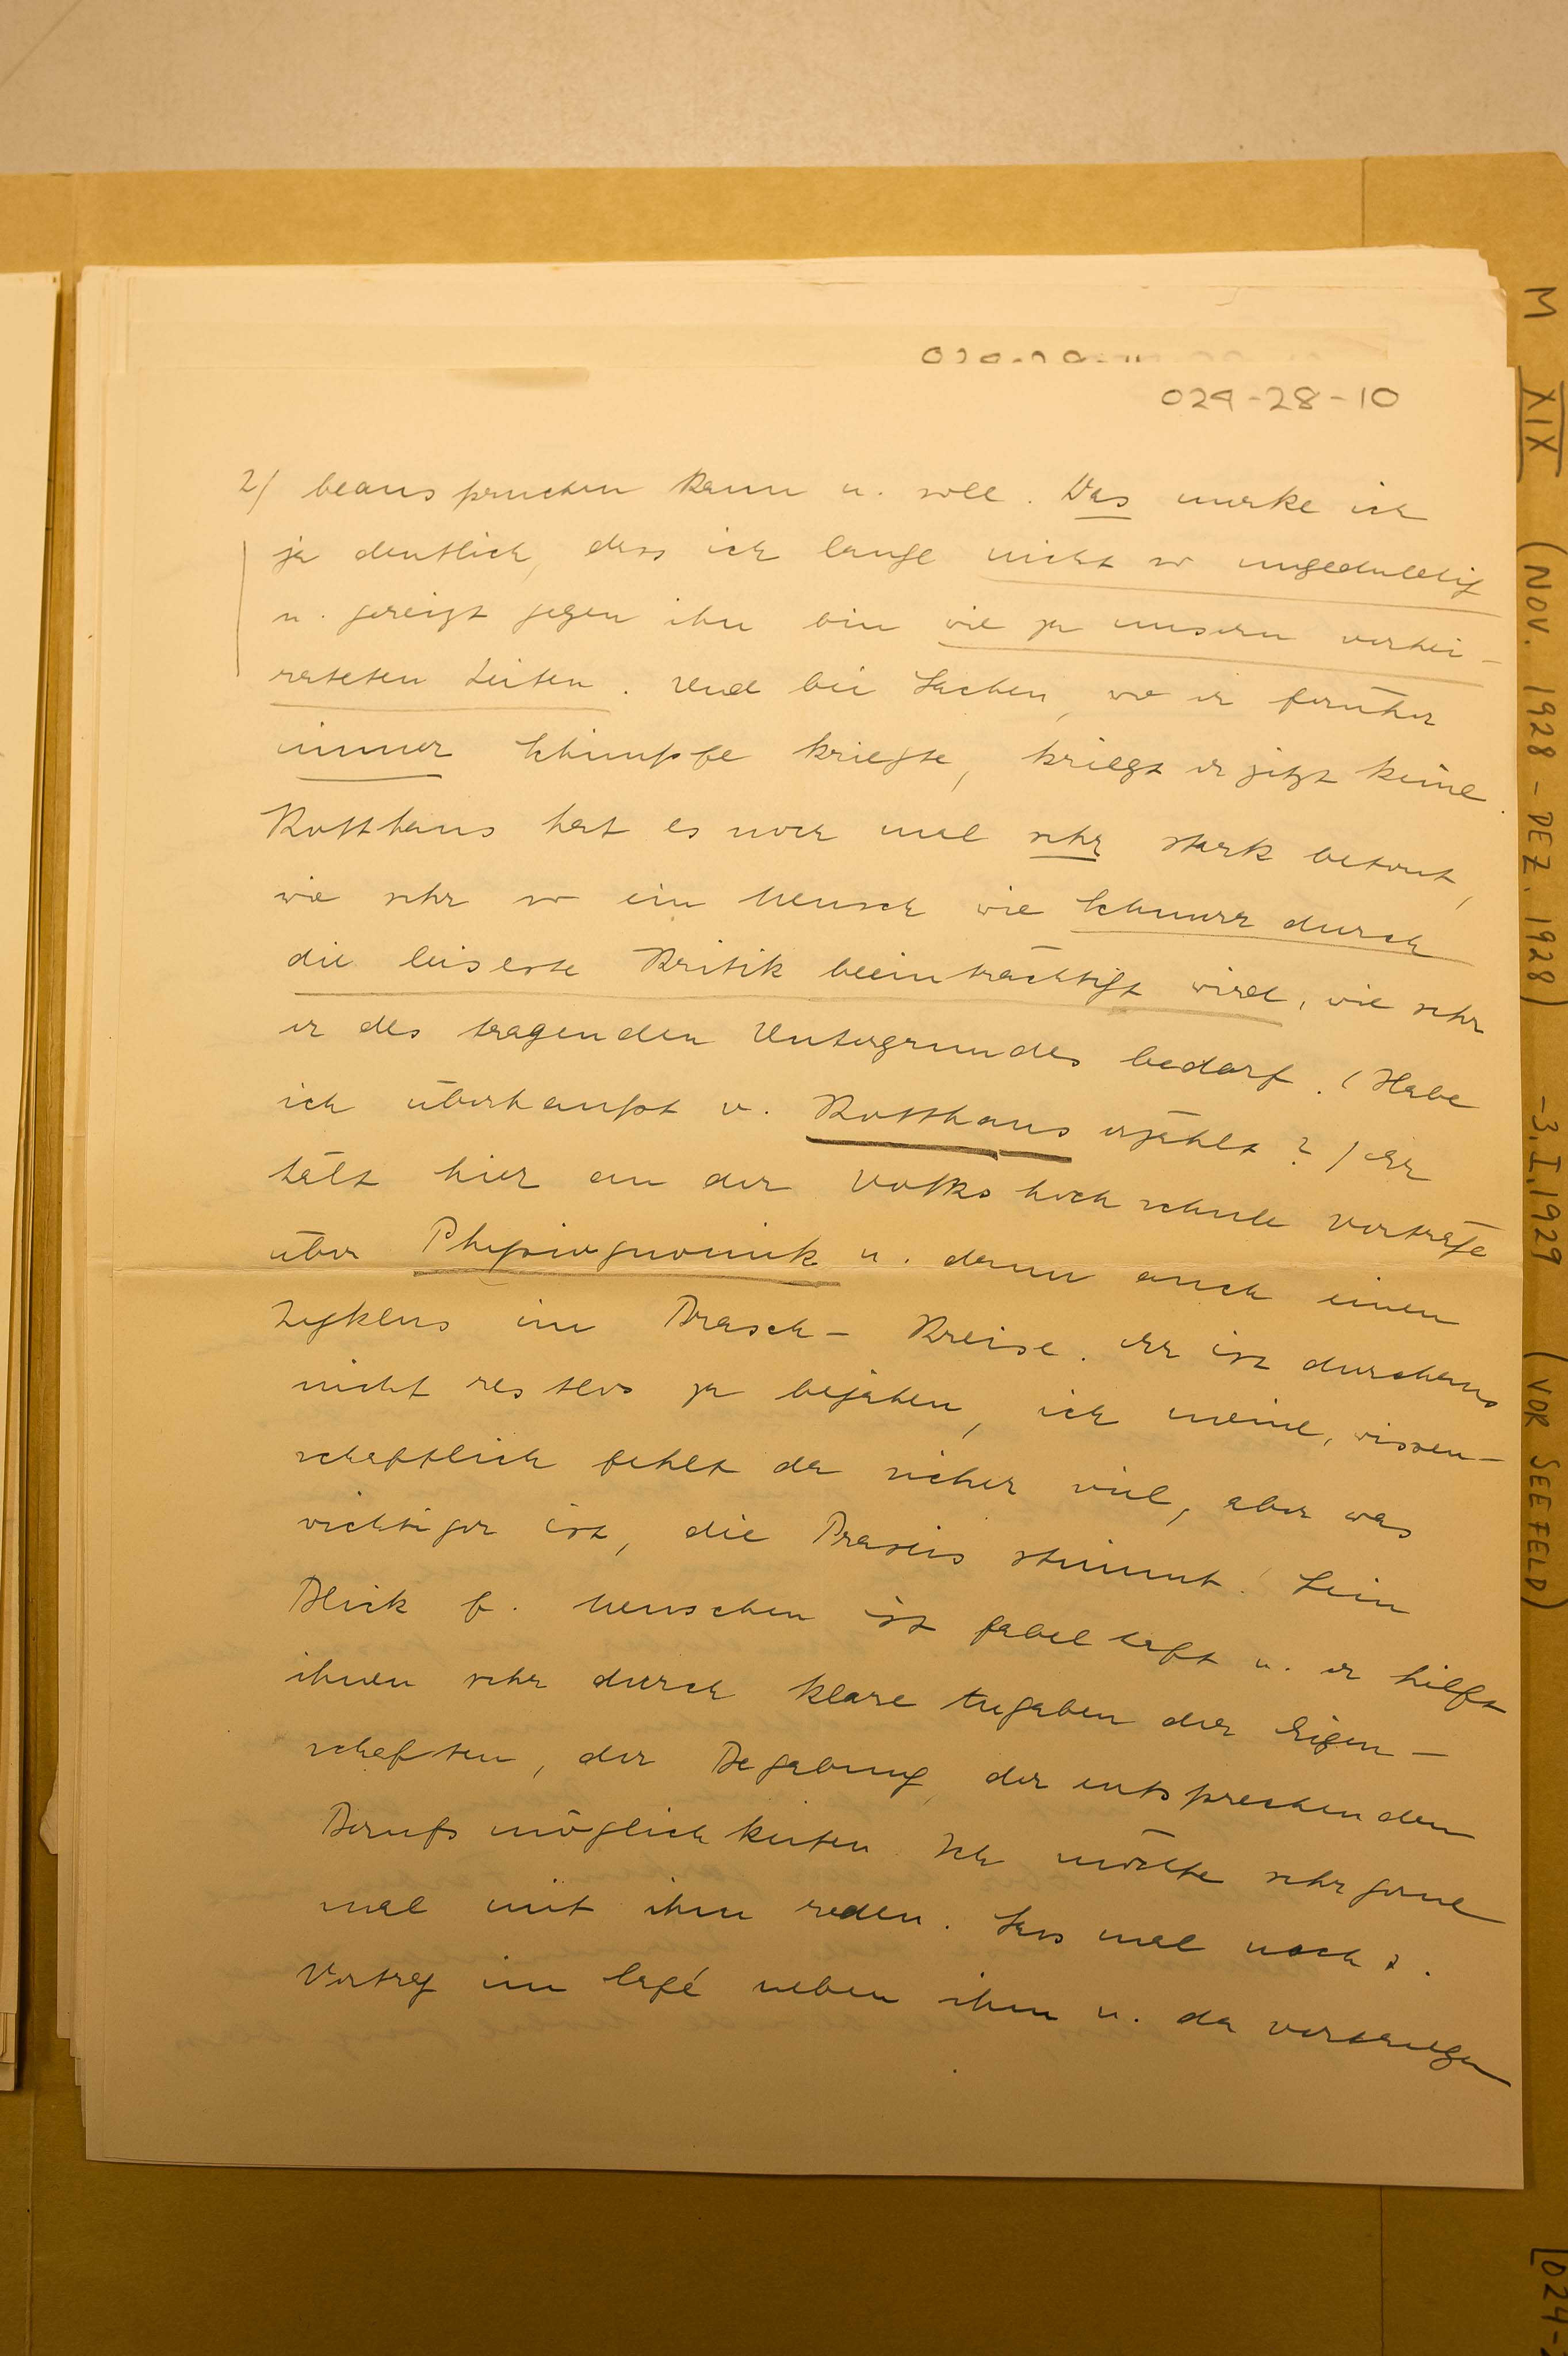 024-28-10
2) beanspruchen kann u. soll. Das merke ich
ja deutlich, dass ich lange nicht so ungeduldig
u. gereizt gegen ihn bin wie zu unsern verhei-
rateten Zeiten. Und bei Sachen, wo er früher
immer Schimpfe kriegte, kriegt er jetzt keine.
Rotthaus hat es noch mal sehr stark betont,
wie sehr so ein Mensch wie Schnurr durch
die leiseste Kritik beeinträchtigt wird, wie sehr
er des tragenden Untergrundes bedarf. (Habe
ich überhaupt v. Rotthaus erzählt?) Er
hält hier an der Volkshochschule Vorträge
über Physiognomik u. dann auch einen
Zyklus im Prasch-Kreise. Er ist durchaus
nicht restlos zu bejahen, ich meine, wissen-
schaftlich fehlt da sicher viel, aber was
wichtiger ist, die Praxis stimmt! Sein
Blick f. Menschen ist fabelhaft u. er hilft
ihnen sehr durch klare Angaben der Eigen-
schaften, der Begabung, der entsprechenden
Berufsmöglichkeiten. Ich möchte sehr gerne
mal mit ihm reden. Sass mal nach d.
Vortrag im Café neben ihm u. da
M XIX (NOV. 1928 - DEZ. 1928) -3.I.1929 (VOR SEEFELD)
[024-